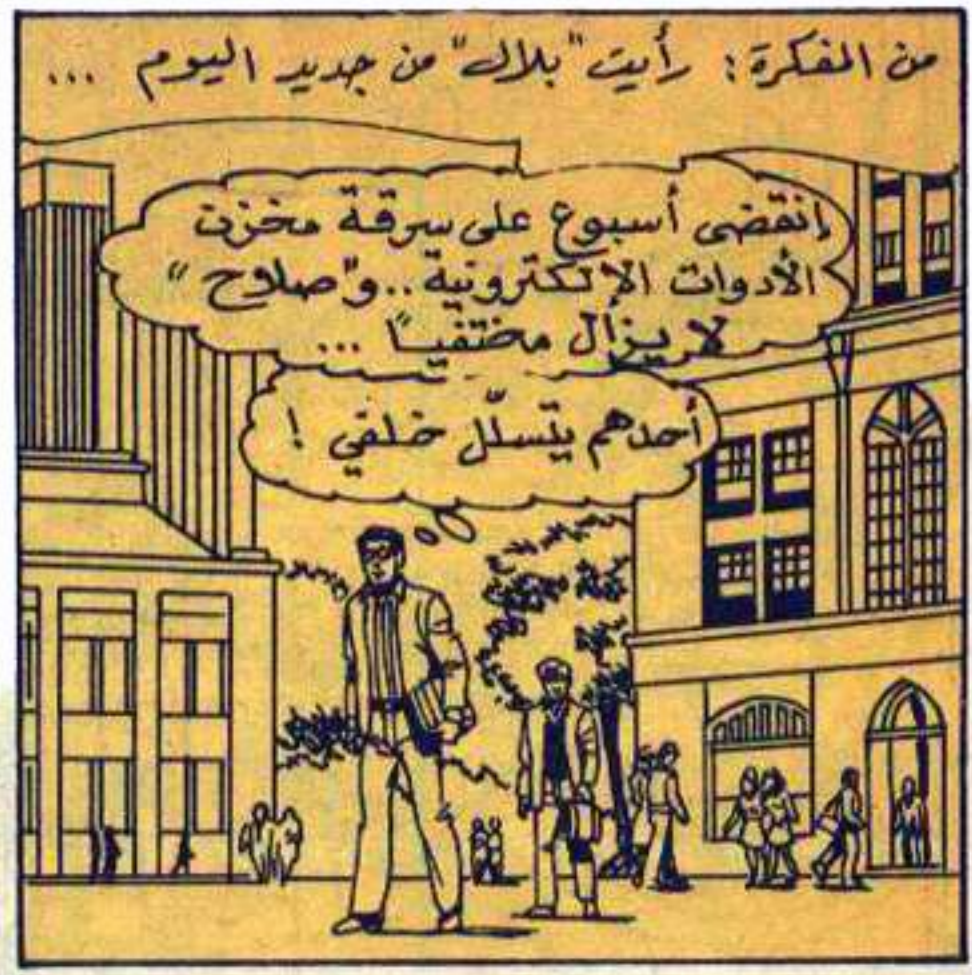 من المفكرة: رأيت "بلال" من جديد اليوم ...
إنقضى أسبوع على سرقة مخزن
الأدوات الإلكترونية.. و"صلاح"
لا يزال مختفياً ...
أحدهم يتسلّل خلفي !